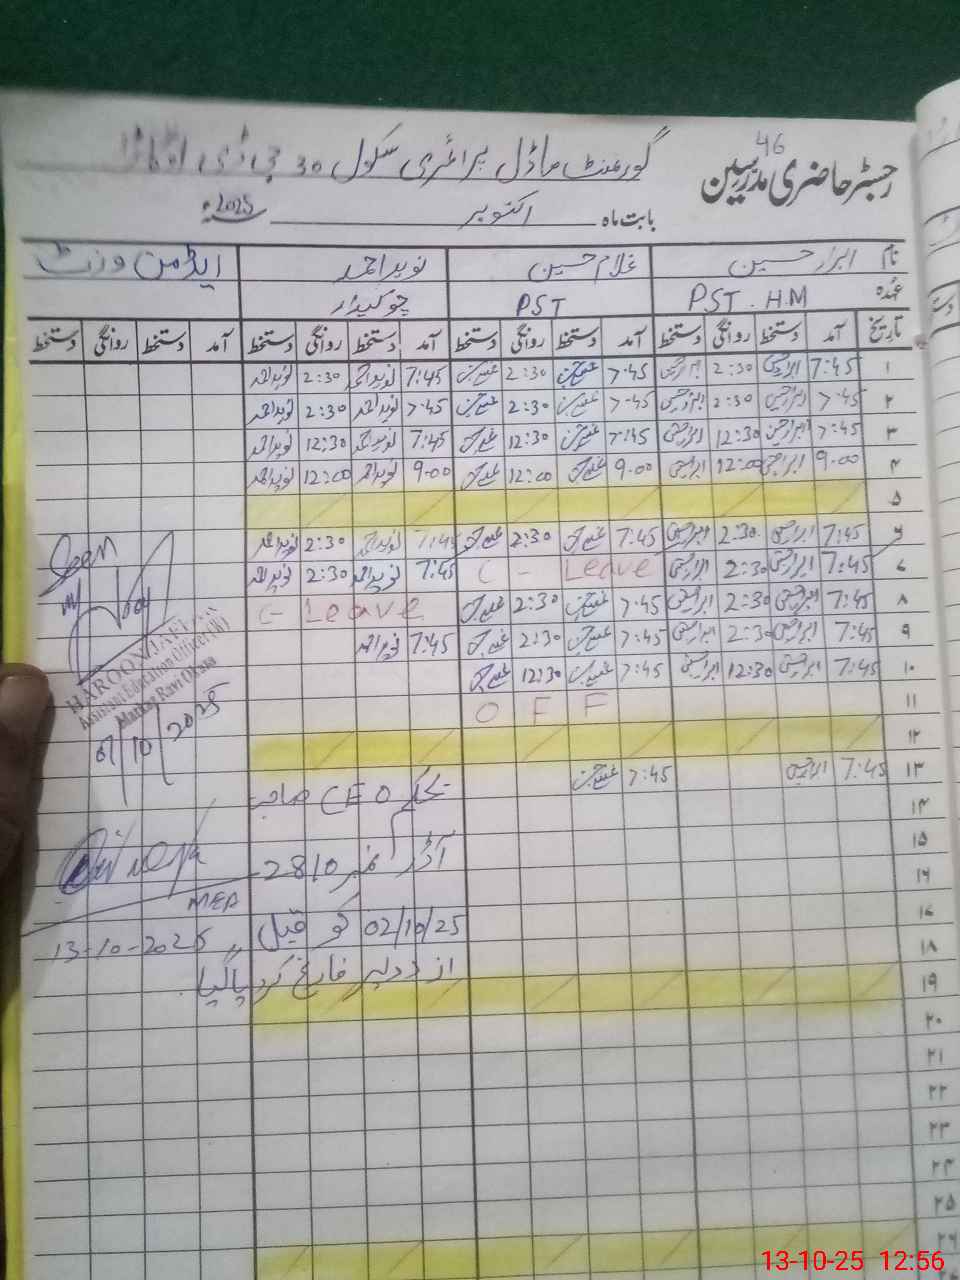 46
رجسٹر حاضری مدرسین
گورنمنٹ ماڈل پرائمری سکول 30 جی ڈی اوکاڑا
بابت ماہ اکتوبر 2025ء
نام ابرار حسین غلام حسین نوید احمد ایڈمن وزٹ
عہدہ PST . H.M PST چوکیدار
تاریخ آمد دستخط روانگی دستخط آمد دستخط روانگی دستخط آمد دستخط روانگی دستخط آمد دستخط روانگی دستخط
۱ 7:45 ابرارحسین 2:30 ابرارحسین 7:45 2:30 7:45 نوید احمد 2:30 نوید احمد
۲ 7:45 ابرارحسین 2:30 ابرارحسین 7:45 2:30 7:45 نوید احمد 2:30 نوید احمد
۳ 7:45 ابرارحسین 12:30 ابرارحسین 7:45 12:30 7:45 نوید احمد 12:30 نوید احمد
۴ 9:00 ابرارحسین 12:00 ابرارحسین 9:00 12:00 9:00 نوید احمد 12:00 نوید احمد
۵
۶ 7:45 ابرارحسین 2:30 ابرارحسین 7:45 2:30 7:45 نوید احمد 2:30 نوید احمد
۷ 7:45 ابرارحسین 2:30 ابرارحسین C - Leave 7:45 نوید احمد 2:30 نوید احمد
۸ 7:45 ابرارحسین 2:30 ابرارحسین 7:45 2:30 C - Leave
۹ 7:45 ابرارحسین 2:30 ابرارحسین 7:45 2:30 7:45 نوید احمد
۱۰ 7:45 ابرارحسین 12:30 ابرارحسین 7:45 12:30
۱۱ O F F
۱۲
۱۳ 7:45 ابرارحسین 7:45
۱۴
۱۵
۱۶
۱۷
۱۸
۱۹
۲۰
۲۱
۲۲
۲۳
۲۴
۲۵
۲۶
بحکم CEO صاحب
آڈر نمبر 2810
02/10/25 کو قبل
از دوپہر فارغ کر دیا گیا
Seen
Assistant Education Officer (M)
Markaz Ravi Okara
10/2025
MEA
13-10-2025
13-10-25 12:56